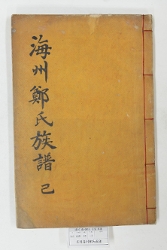 海州鄭氏族譜 己